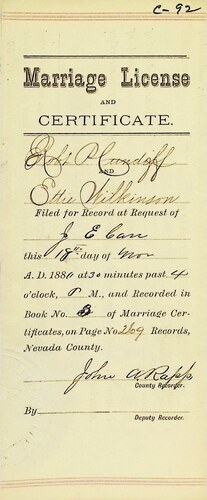 C-92
Marriage License
AND
CERTIFICATE.
Robt P Cundoff
AND
Ettie Wilkinson
Filed for Record at Request of
J E Carr
this 18th day of Nov
A. D. 1886 at 30 minutes past 4
o'clock, P M., and Recorded in
Book No. 3 of Marriage Cer-
tificates, on Page No 269 Records,
Nevada County.
John A Rapp
County Recorder.
By
Deputy Recorder.